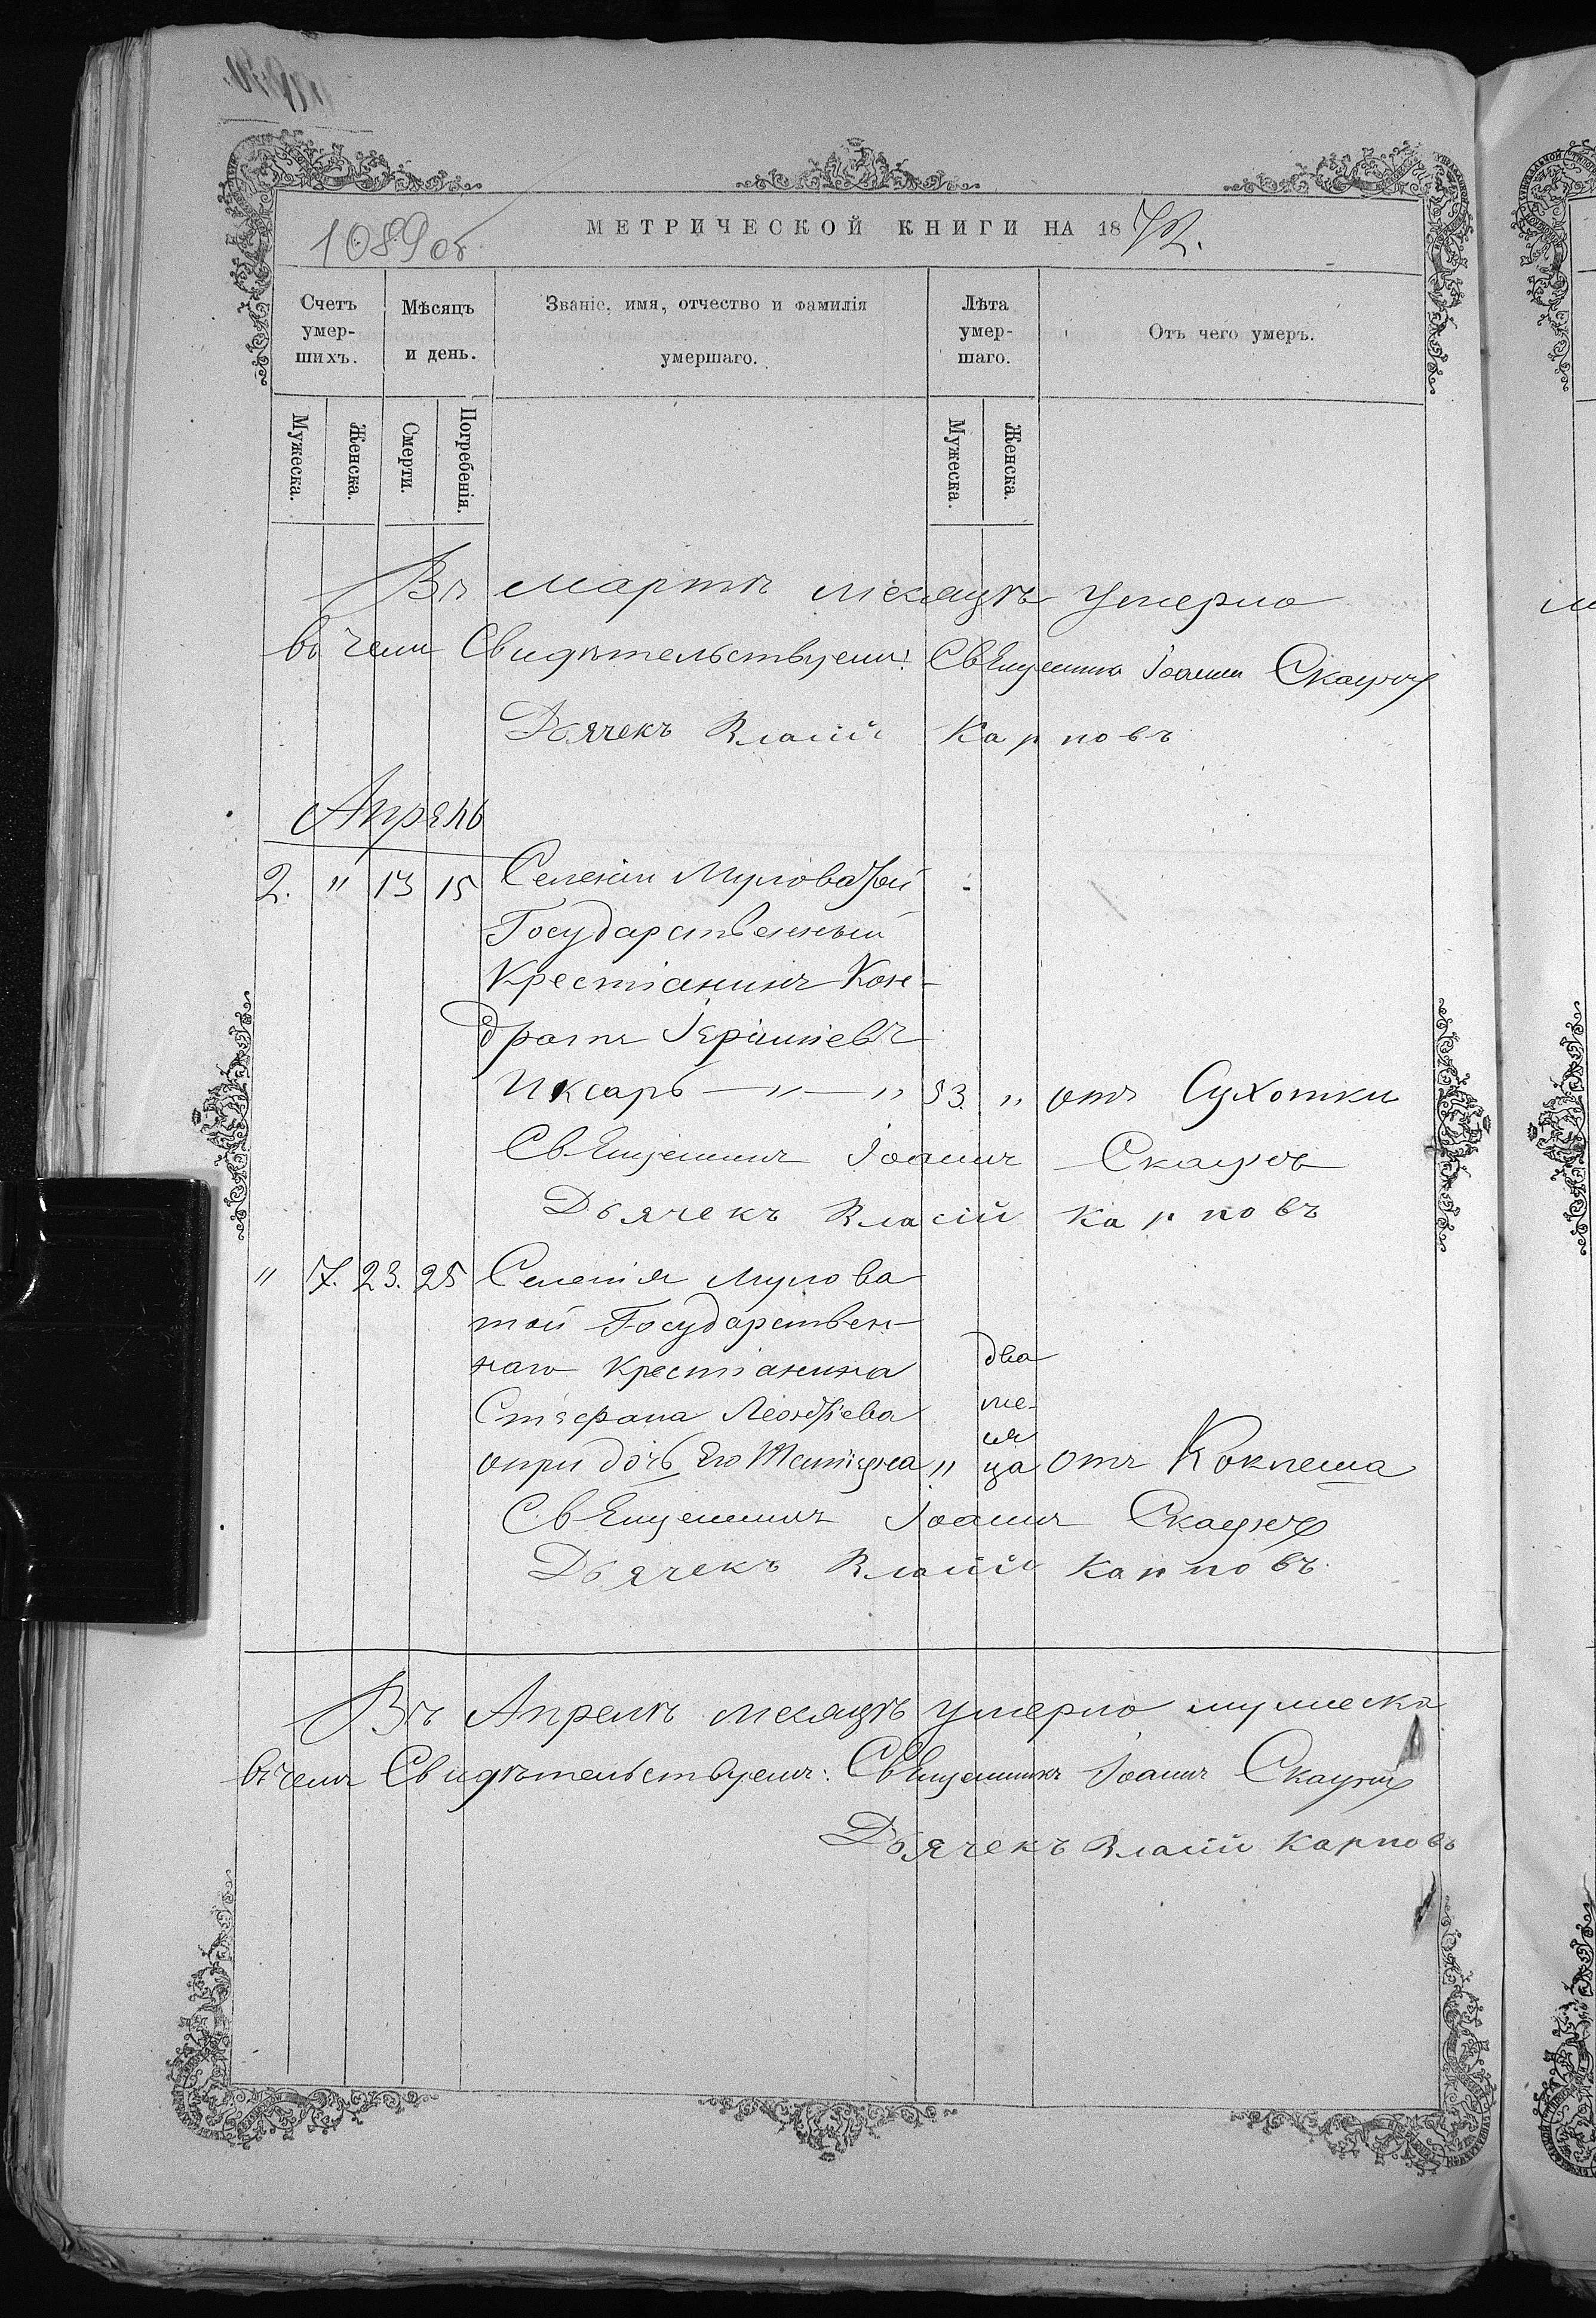 1089об
МЕТРИЧЕСКОЙ КНИГИ НА 1872.
Счетъ умер-шихъ.
Мѣсяцъ и день.
Званіе, имя, отчество и фамилія умершаго.
Лѣта умер-шаго.
Отъ чего умеръ.
Мужеска.
Женска.
Смерти.
Погребенія.
Мужеска.
Женска.
Въ Мартѣ месяцѣ умерло
въ чемъ Свидѣтельствуемъ: Священникъ Іоаннъ
Дьячекъ Власій Карповъ
Апрель
2. " 13 15 Селенія Муловатой
Государственный
Крестіанинъ Кон-
дратъ
Иксарь — " — " 53. " отъ Сухотки
Священникъ Іоаннъ
Дьячекъ Власій Карповъ
" 7. 23. 25 Селенія Мулова
той Государствен-
наго Крестіанина два
Стефана Леонтіева ме-
дочь Его " ся ца отъ Коклюша
Священникъ Іоаннъ
Дьячекъ Власій Карповъ.
Въ Апрелѣ месяцѣ умерло мужеска
въ чемъ Свидѣтельствуемъ: Священникъ Іоаннъ
Дьячекъ Власій Карповъ